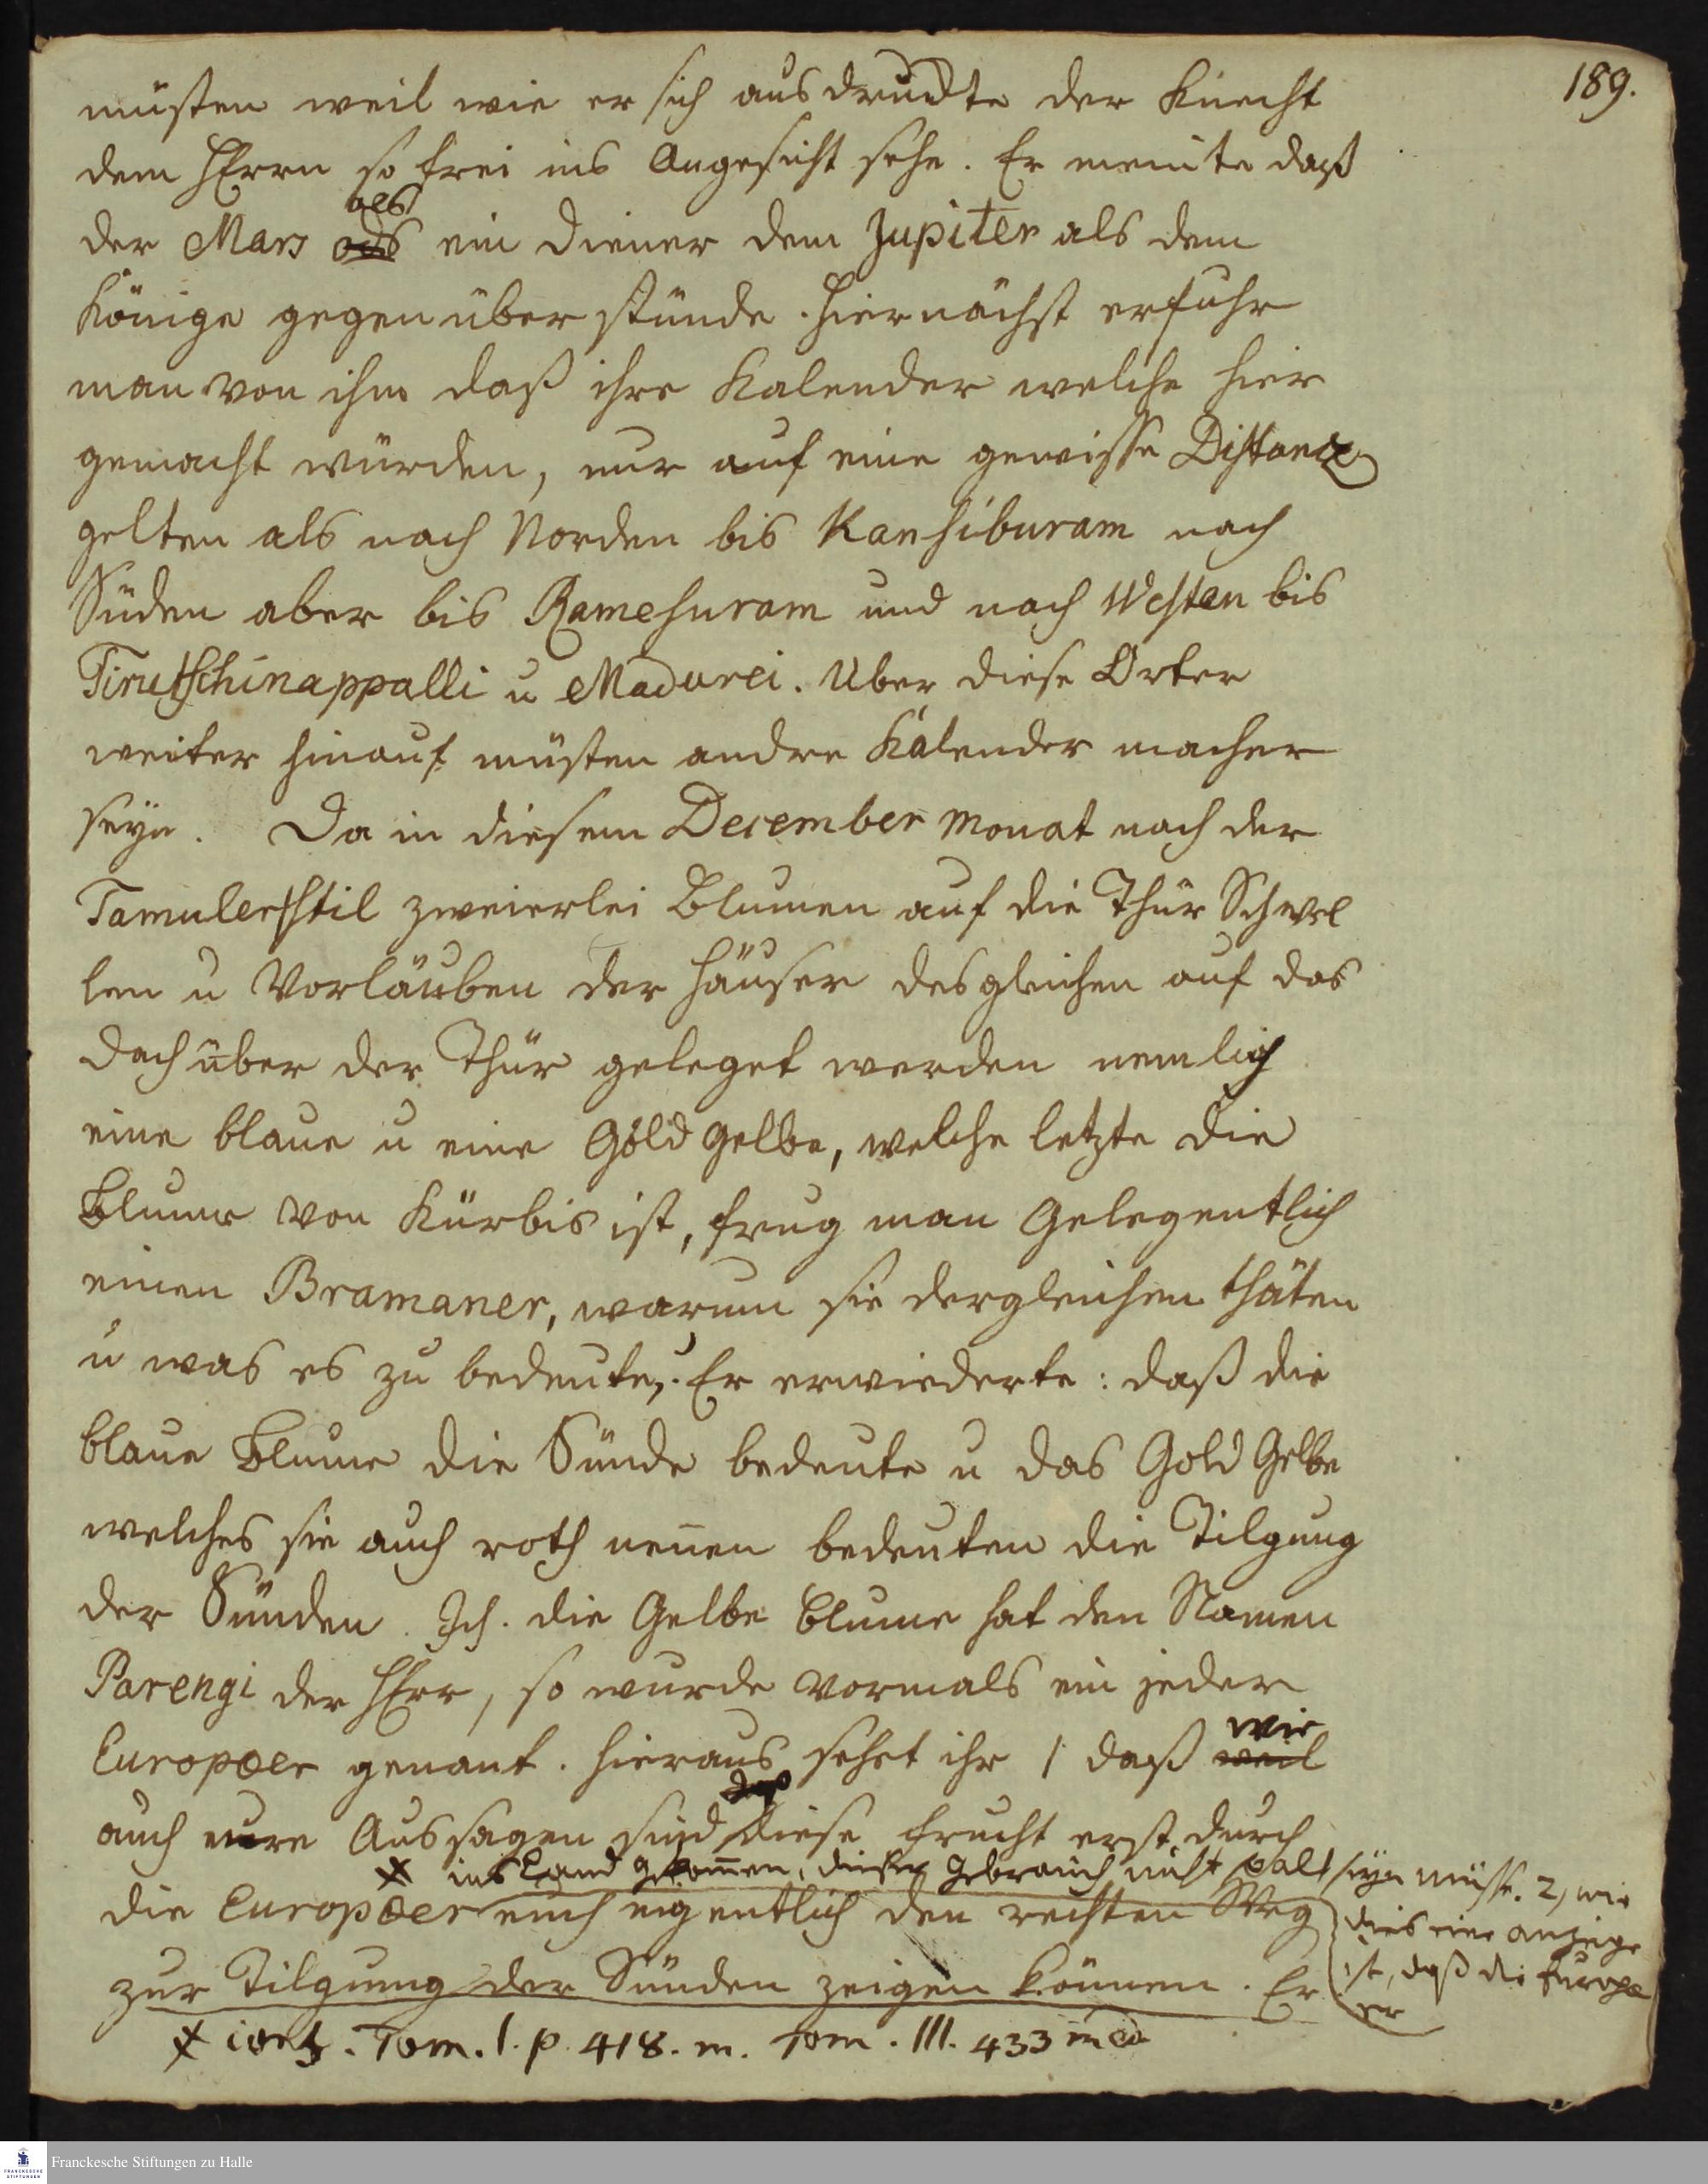 189.
müsten weil wie er sich ausdruckte der Knecht
dem HErrn so frei ins Angesicht sehe. Er meinte daß
als
der Mars ein Diener dem Jupiter als dem
Könige gegenüber stünde. Hiernächst erfuhr
man von ihm daß ihre Kalender welche hier
gemacht würden, nur auf eine gewisse Distanz
gelten als nach Norden bis Kanhiburam nach
Süden aber bis Ramesuram und nach Westen bis
Tirutschinappalli u Madurei. Uber diese Örter
weiter hinauf müsten andre Kalender macher
seyn. Da in diesem December Monat nach der
Tamuler Stil zweierlei Blumen auf die Thür Schwel
len u Vorläuben der Häuser desgleichen auf das
Dach über der Thür geleget werden nemlich
eine blaue u eine Gold gelbe, welche letzte die
Blume von Kürbis ist, frug man Gelegentlich
einen Bramaner, warum sie dergleichen thäten
u was es zu bedeute? Er erwiederte: daß die
blaue Blume die Sünde bedeute u das Gold Gelbe
welches sie auch roth nennen bedeuten die Tilgung
der Sünden. Ich. die Gelbe Blume hat den Namen
Parengi der HErr, so wurde vormals ein jeder
wie
Europæer genant. Hieraus sehet ihr 1 daß weil
daß
auch eure Aussagen sind diese Frucht erst durch
x ins Land gekommen, dieser Gebrauch nicht balt seyn müsse. 2, wie
die Europæer euch eigentlich den rechten Weg
dies eine anzeige
ist, daß die Europæ
er
zur Tilgung der Sünden zeigen können. Er
x Tom. I. p. 418. m. Tom. III. 433
Franckesche Stiftungen zu Halle